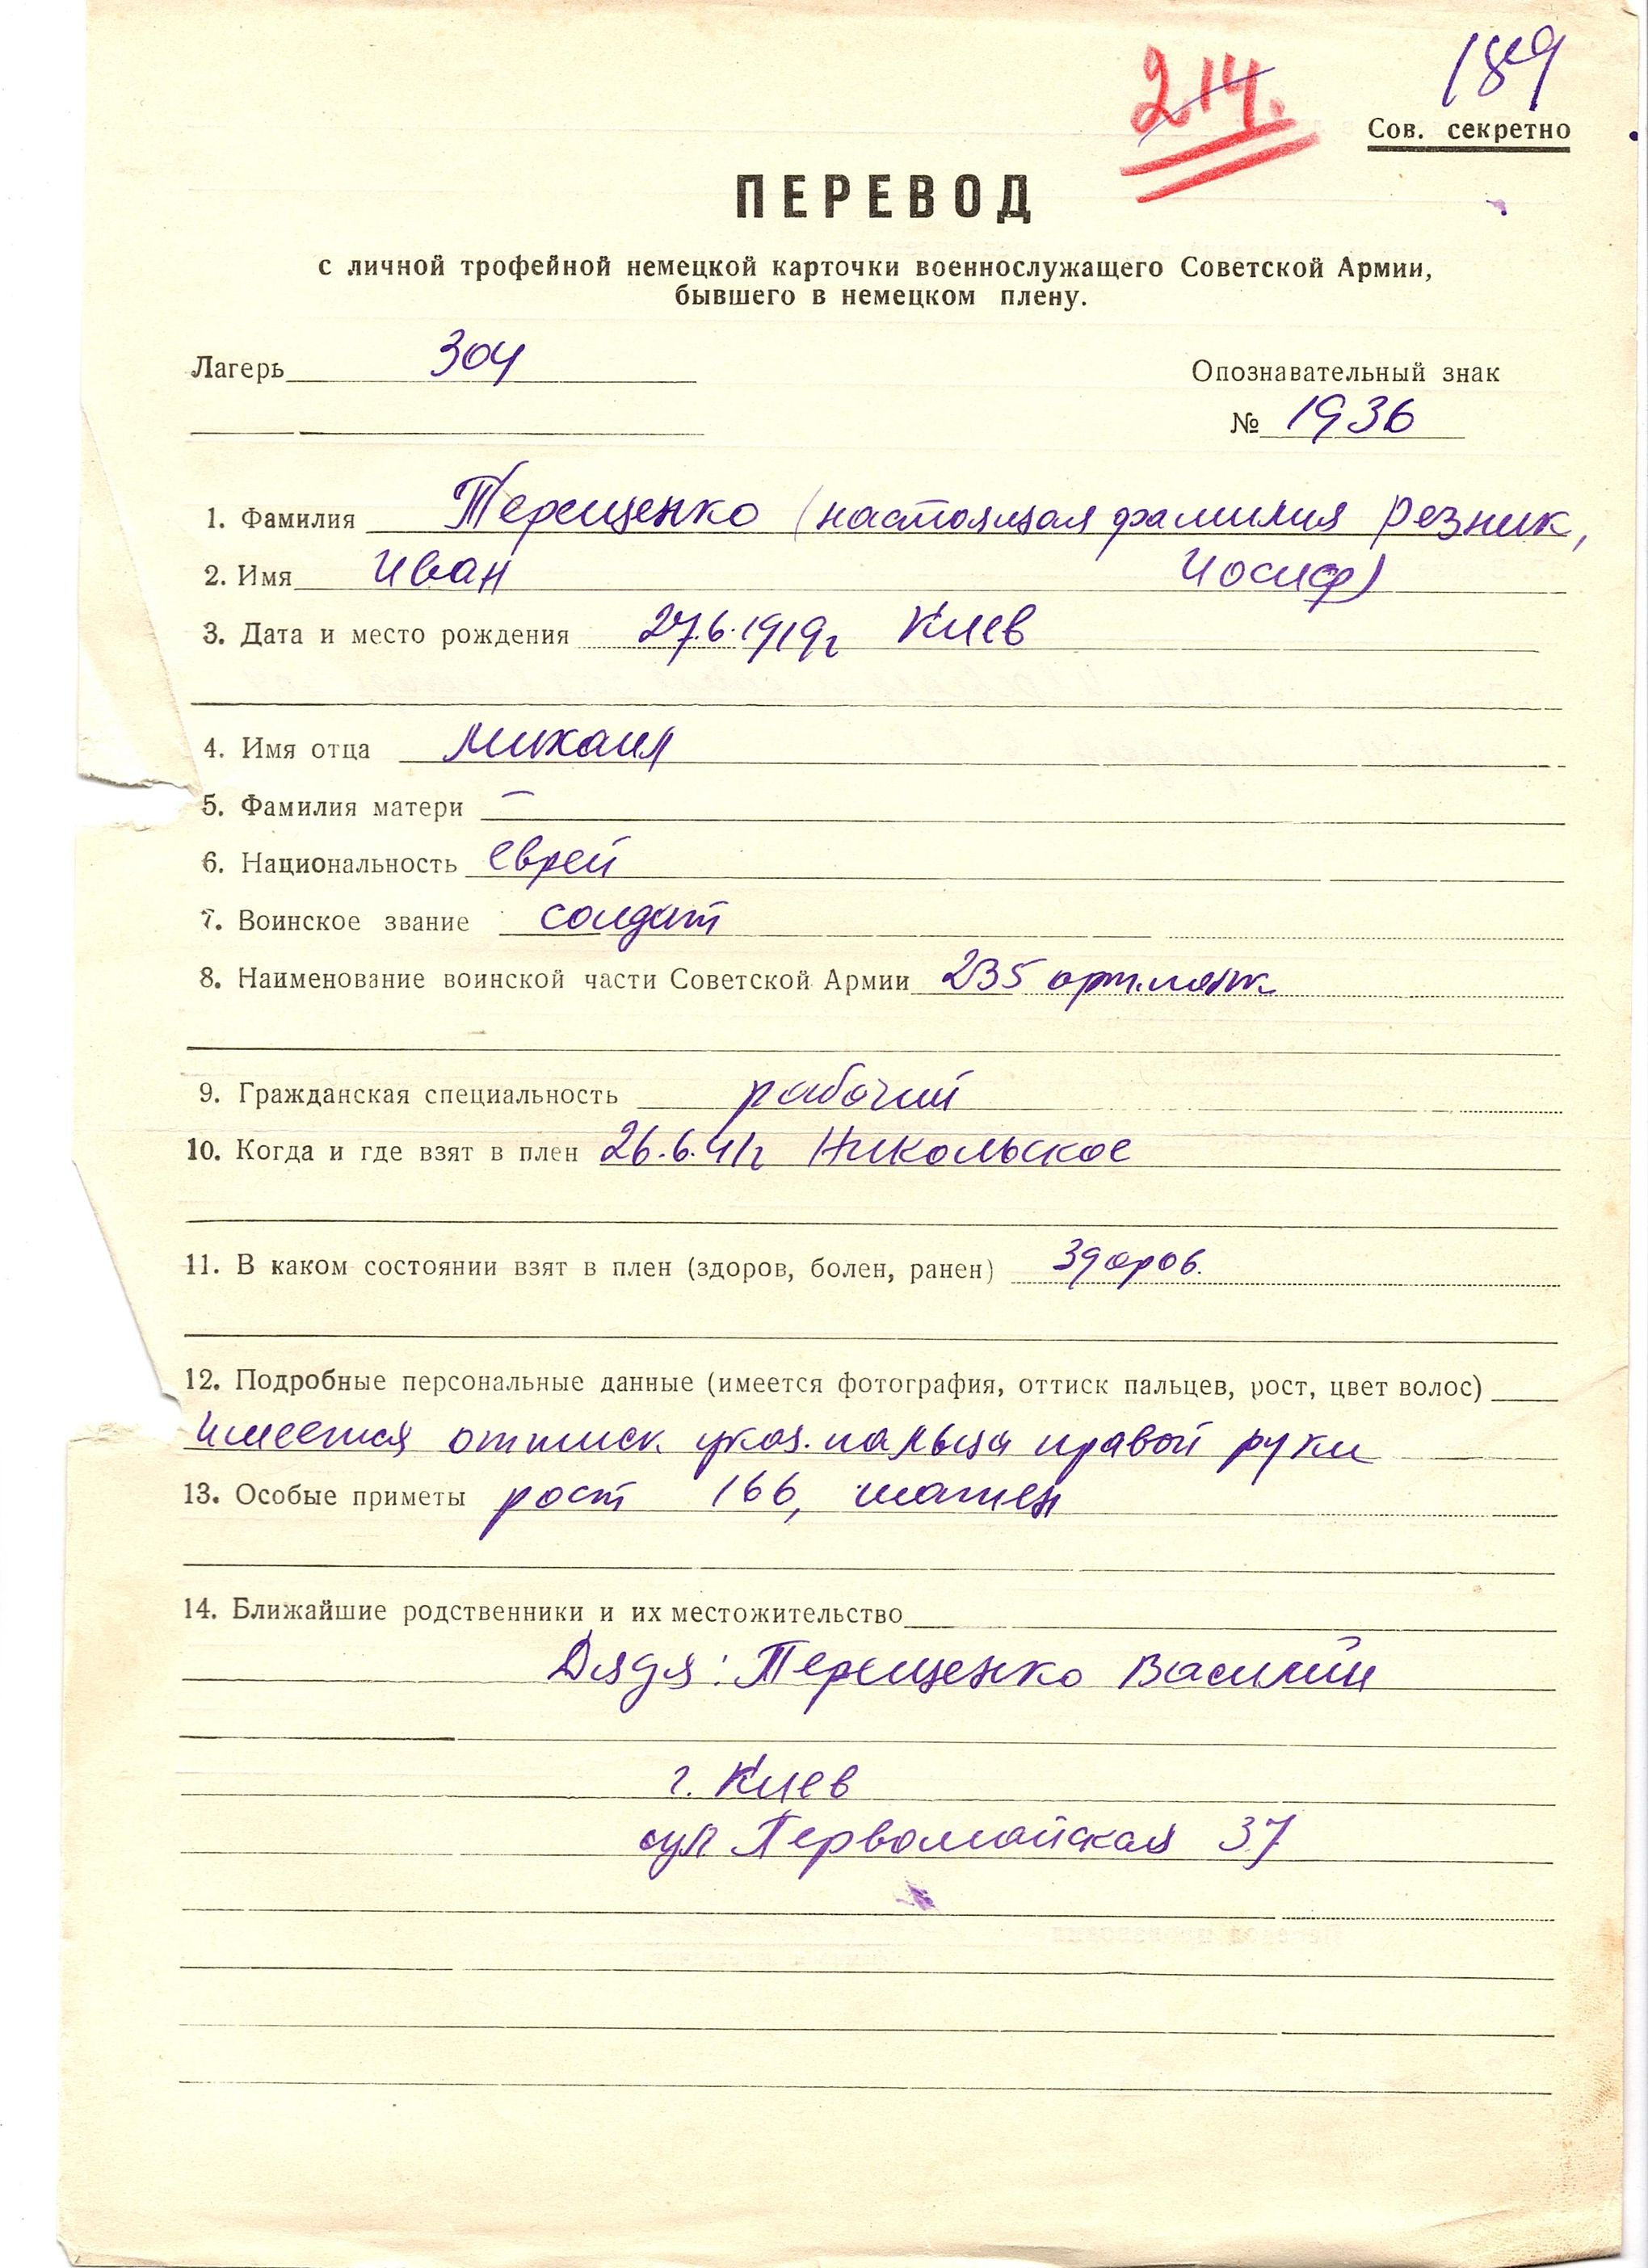 214.
189
Сов. секретно
ПЕРЕВОД
с личной трофейной немецкой карточки военнослужащего Советской Армии,
бывшего в немецком плену.
Лагерь 304
Опознавательный знак
№ 1936
1. Фамилия Терещенко (настоящая фамилия Резник,
2. Имя Иван Иосиф)
3. Дата и место рождения 27.6.1919г Киев
4. Имя отца Михаил
5. Фамилия матери –
6. Национальность еврей
7. Воинское звание солдат
8. Наименование воинской части Советской Армии 235 арт.полк
9. Гражданская специальность рабочий
10. Когда и где взят в плен 26.6.41г Никольское
11. В каком состоянии взят в плен (здоров, болен, ранен) здоров.
12. Подробные персональные данные (имеется фотография, оттиск пальцев, рост, цвет волос)
имеется оттиск указ. пальца правой руки
13. Особые приметы рост 166, шатен
14. Ближайшие родственники и их местожительство
Дядя: Терещенко Василий
г. Киев
ул Первомайская 37